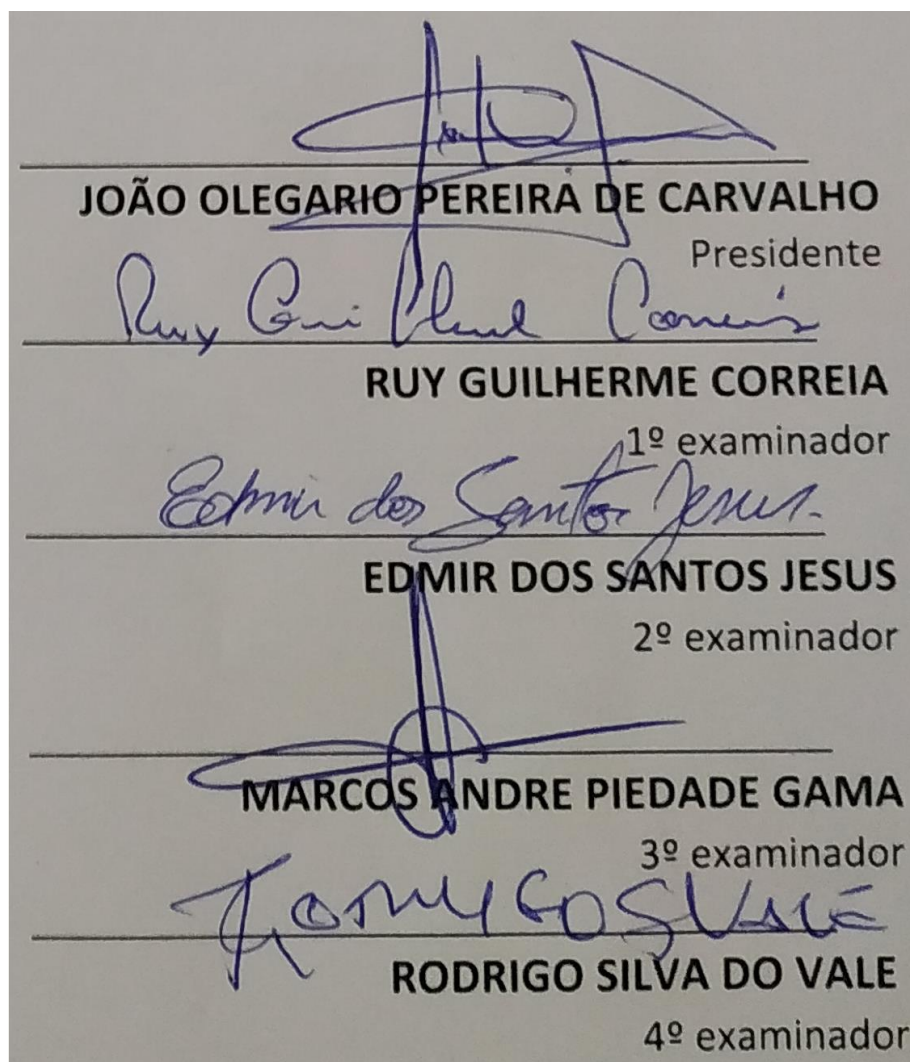 JOÃO OLEGARIO PEREIRA DE CARVALHO
Presidente
Ruy Guilherme Correia
RUY GUILHERME CORREIA
1º examinador
Edmir dos Santos Jesus.
EDMIR DOS SANTOS JESUS
2º examinador
MARCOS ANDRE PIEDADE GAMA
3º examinador
RODRIGO SILVA DO VALE
4º examinador